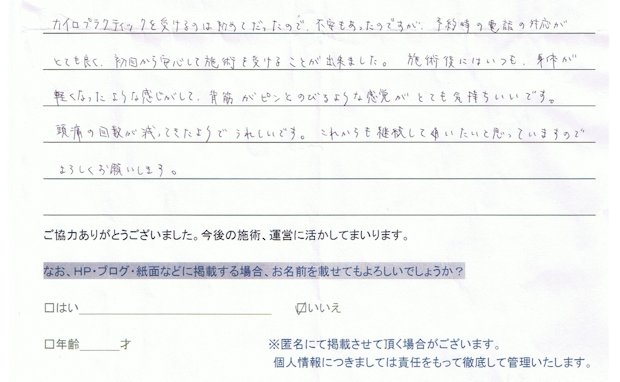 カイロプラクティックを受けるのは初めてだったので、不安もあったのですが、予約時の電話の対応が
とても良く、初回から安心して施術を受けることが出来ました。 施術後にはいつも、身体が
軽くなったような感じがして、背筋がピンとのびるような感覚がとても気持ちいいです。
頭痛の回数が減ってきたようでうれしいです。 これからも継続して通いたいと思っていますので
よろしくお願いします。
ご協力ありがとうございました。今後の施術、運営に活かしてまいります。
なお、HP・ブログ・紙面などに掲載する場合、お名前を載せてもよろしいでしょうか？
□はい
☑いいえ
□年齢______才
※匿名にて掲載させて頂く場合がございます。
個人情報につきましては責任をもって徹底して管理いたします。